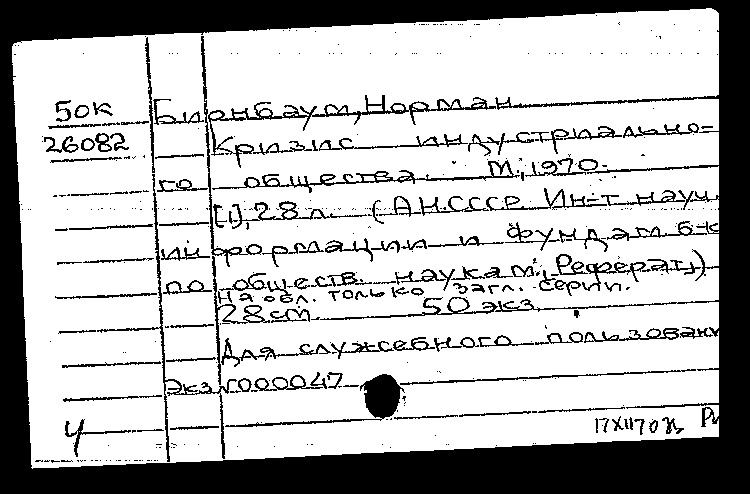 50К Бирнбаум, Норман
26082 Кризис индустриально-
го общества. М., 1970.
[1], 28 л. (АН СССР. Ин-т науч.
информации и фундам. б-к
по обществ. наукам. Реферат.)
На обл. только загл. серии.
28 см. 50 экз.
Для служебного пользовани
Экз. №000047
Ч
17 XII 70